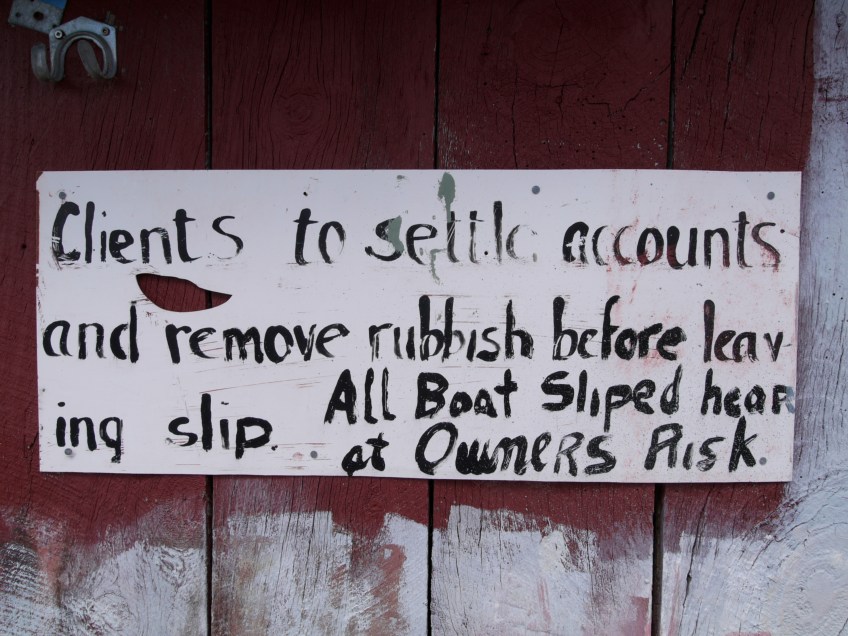 Clients to settle accounts
and remove rubbish before leav
ing slip. All Boat Sliped hear
at Owners Risk.